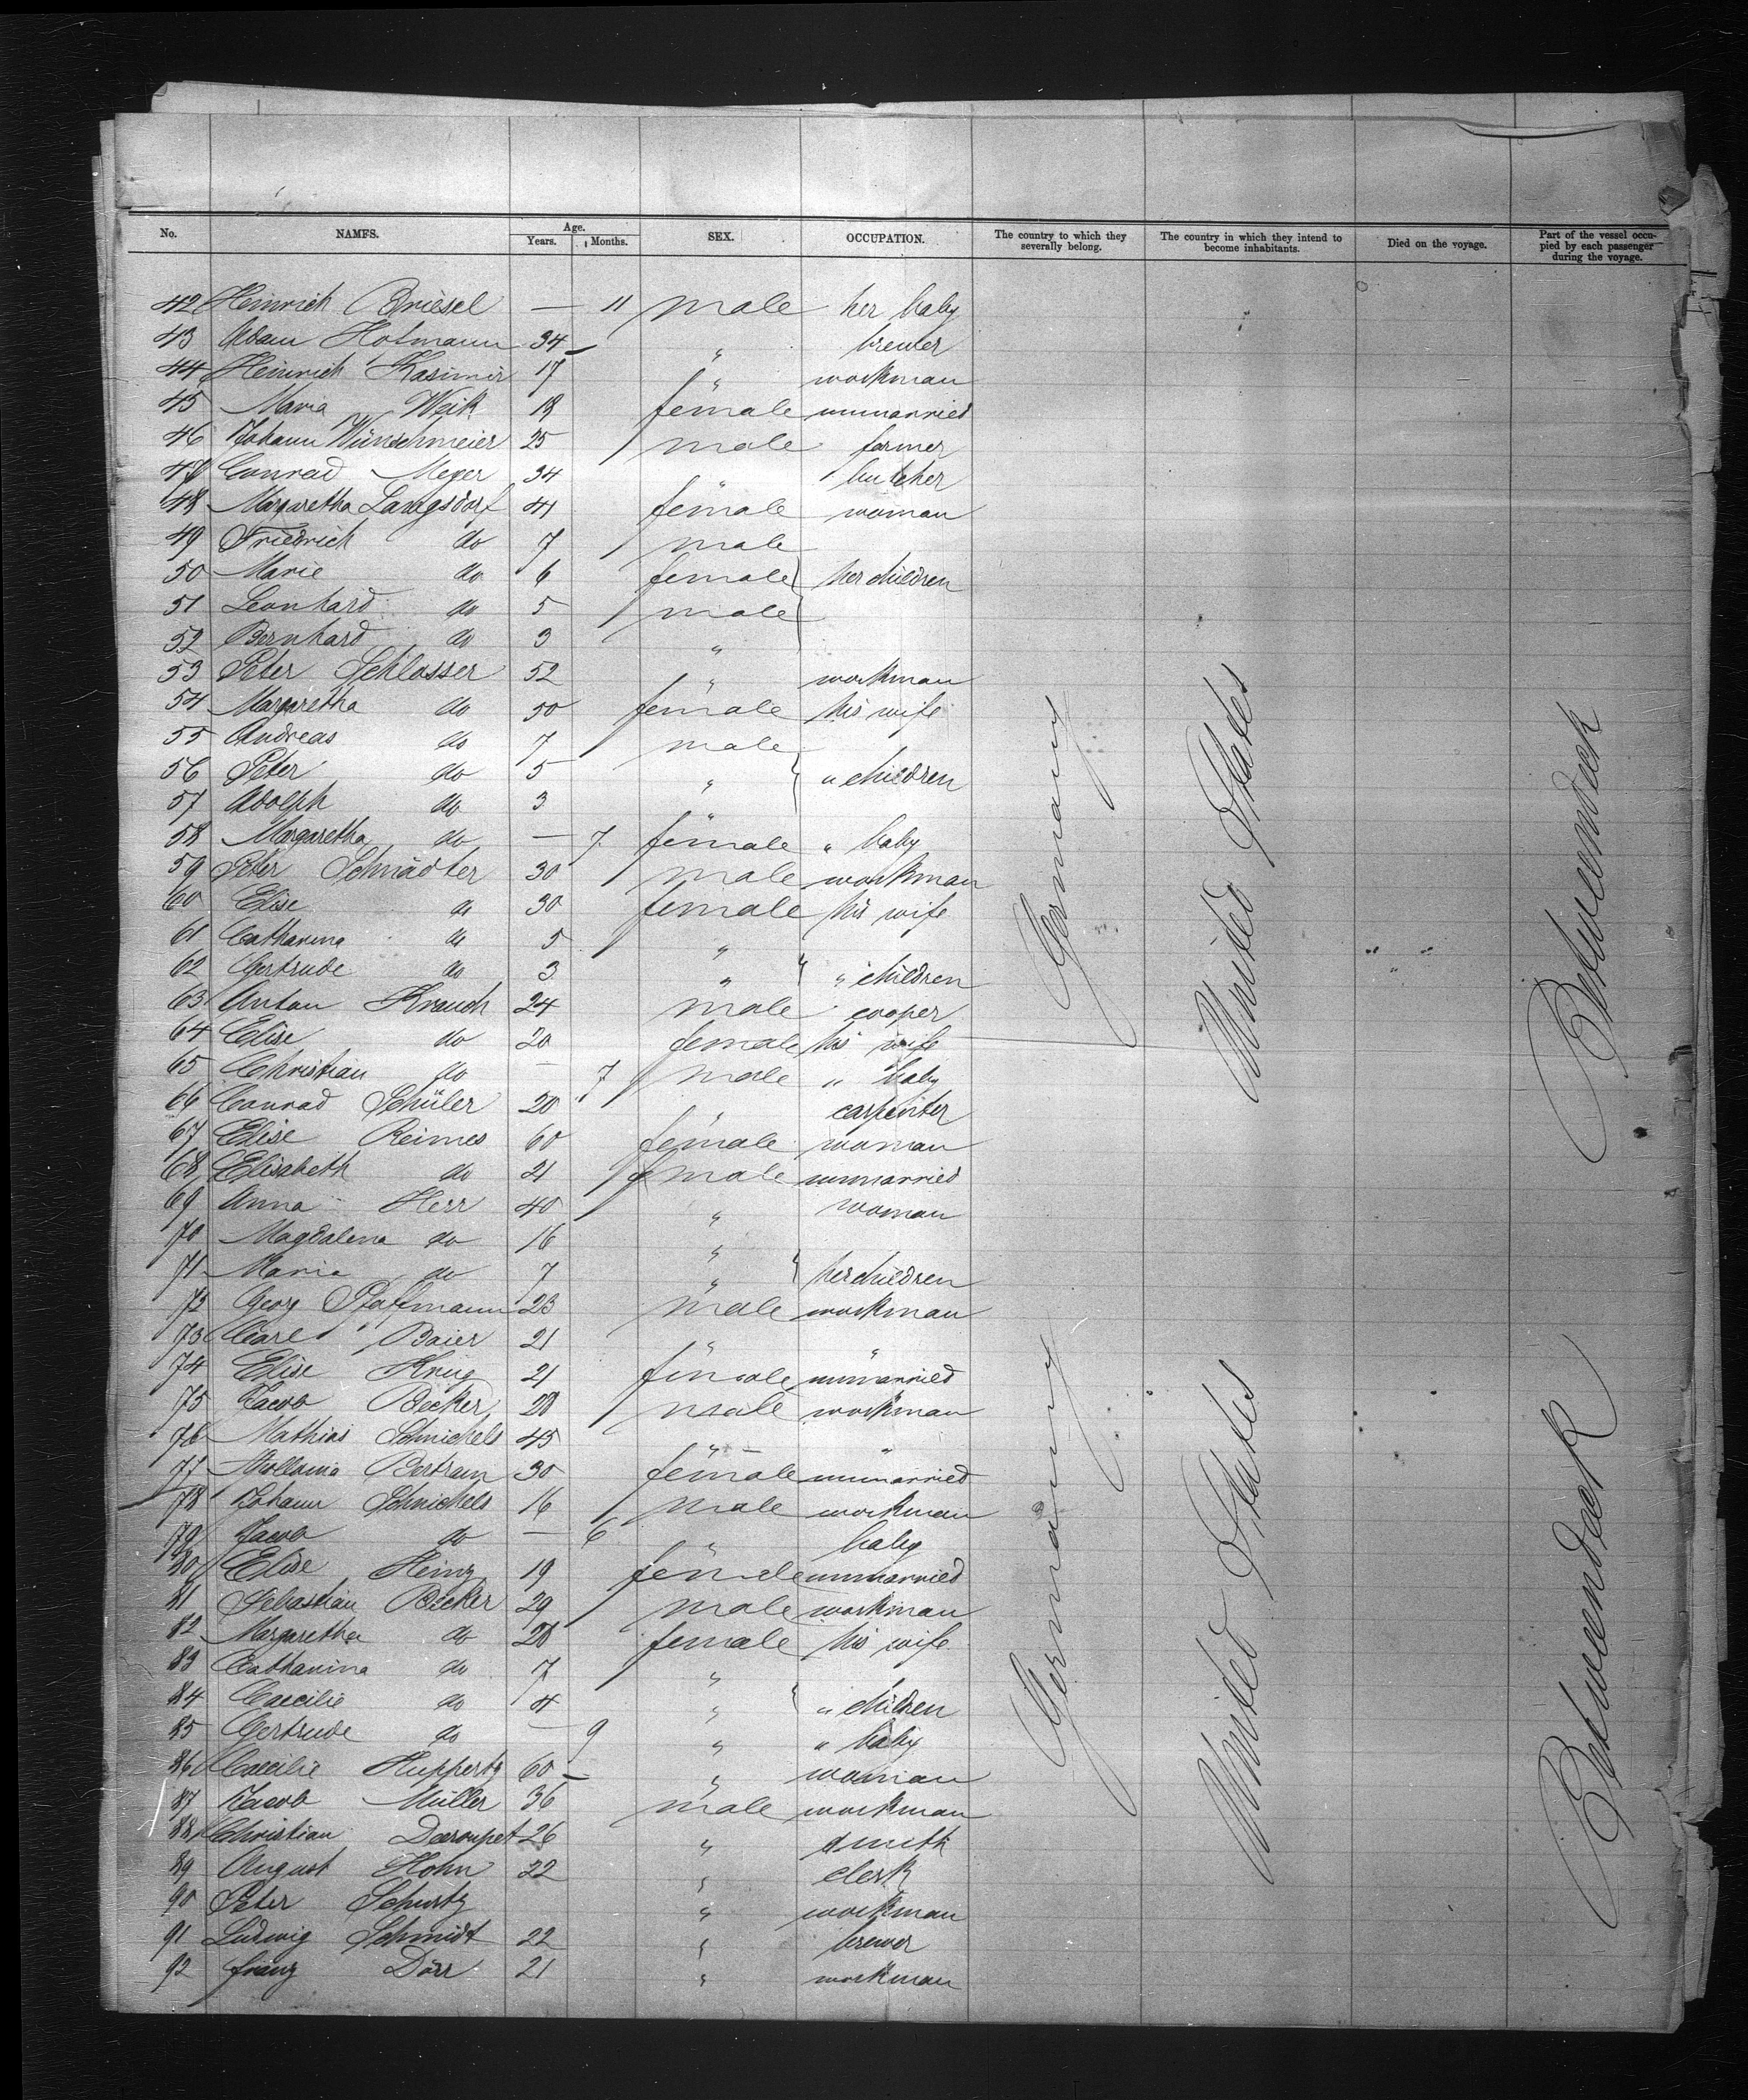 No. NAMES. Age. Years. Months. SEX. OCCUPATION. The country to which they severally belong. The country in which they intend to become inhabitants. Died on the voyage. Part of the vessel occupied by each passenger during the voyage.
42 Heinrich Driesel — 11 male her baby
43 Adam Hofmann 34 " brewer
44 Heinrich Kasimir 17 " workman
45 Maria Weik 18 female unmarried
46 Johann Wünschmeier 25 male farmer
47 Conrad Meyer 34 " butcher
48 Margaretha Langsdorf 41 female woman
49 Friedrich do 7 male
50 Marie do 6 female her children
51 Leonhard do 5 male
52 Bernhard do 3 "
53 Peter Schlosser 52 " workman
54 Margaretha do 50 female his wife
55 Andreas do 7 male
56 Peter do 5 " " children
57 Adolph do 3
58 Margaretha do — 7 female " baby
59 Peter Schnädter 30 male workman
60 Elise do 30 female his wife
61 Catharina do 5 "
62 Gertrude do 3 " " children
63 Anton Krauch 24 male cooper
64 Elise do 20 female his wife
65 Christian do — 7 male " baby
66 Conrad Schüler 20 " carpenter
67 Elise Reimes 60 female woman
68 Elisabeth do 21 female unmarried
69 Anna Herr 40 " woman
70 Magdalena do 16 "
71 Maria do 7 " her children
73 Georg Pfaffmann 23 male workman
73 Carl Baier 21 " "
74 Elise Krug 21 female unmarried
75 Jacob Becker 28 male workman
76 Mathias Schnichels 45 " "
77 Bertram 30 female unmarried
78 Johann Schnichels 16 male workman
79 Jacob do — 6 " baby
80 Elise Heinz 19 female unmarried
81 Sebastian Becker 29 male workman
82 Margaretha do 28 female his wife
83 Catharina do 7 "
84 Caecilie do 4 " " children
85 Gertrude do — 9 " " baby
86 Caecilie Huppertz 60 — " woman
87 Jacob Müller 36 male workman
88 Christian Deroupet 26 " smith
89 August Hohn 22 " clerk
90 Peter Schurtz " workman
91 Ludwig Schmidt 22 " brewer
92 Franz Dörr 21 " workman
Germany United States Betweendeck
Germany United States Betweendeck